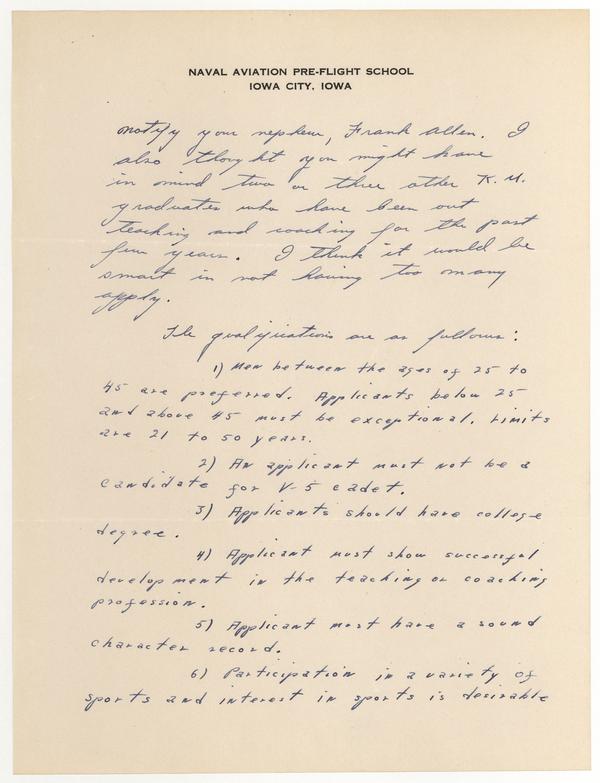 NAVAL AVIATION PRE-FLIGHT SCHOOL
IOWA CITY, IOWA
notify your nephew, Frank Allen. I
also thought you might have
in mind two or three other K.U.
graduates who have been out
teaching and coaching for the past
few years. I think it would be
smart in not having too many
apply.
The qualifications are as follows:
1) Men between the ages of 25 to
45 are preferred. Applicants below 25
and above 45 must be exceptional. Limits
are 21 to 50 years.
2) An applicant must not be a
candidate for V-5 cadet.
3) Applicants should have college
degree.
4) Applicant must show successful
development in the teaching or coaching
profession.
5) Applicant must have a sound
character record.
6) Participation in a variety of
sports and interest in sports is desirable